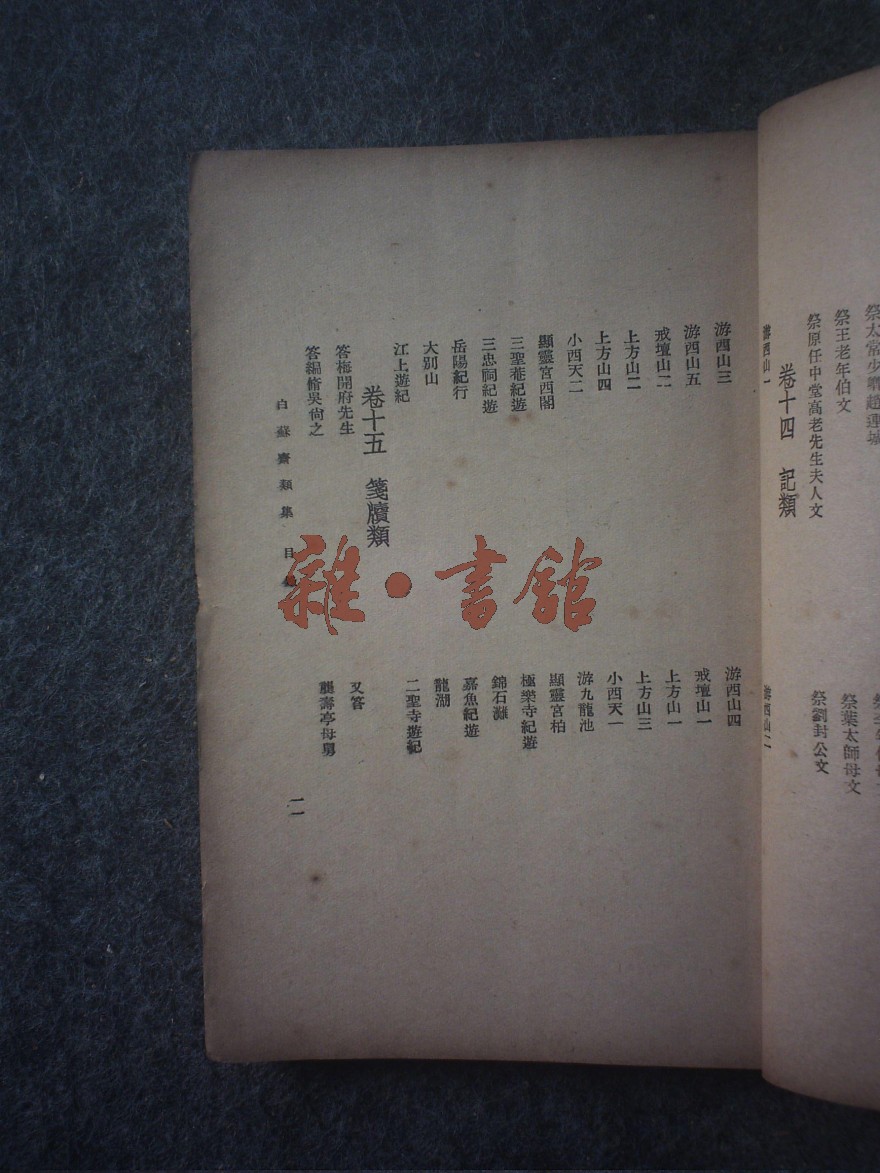 祭王老年伯文　祭葉太師母文
祭原任中堂高老先生夫人文　祭劉封公文
卷十四　記類
游西山一　游西山二
游西山三　游西山四
游西山五　戒壇山一
戒壇山二　上方山一
上方山二　上方山三
上方山四　小西天一
小西天二　游九龍池
顯靈宮西閣　顯靈宮柏
三聖菴紀遊　極樂寺紀遊
三忠祠紀遊　錦石灘
岳陽紀行　嘉魚紀遊
大別山　龍湖
江上遊紀　二聖寺遊紀
卷十五　箋牘類
答梅開府先生　又答
答編脩吳尙之　龔壽亭母舅
白蘇齋類集　目　一一
雜·書館